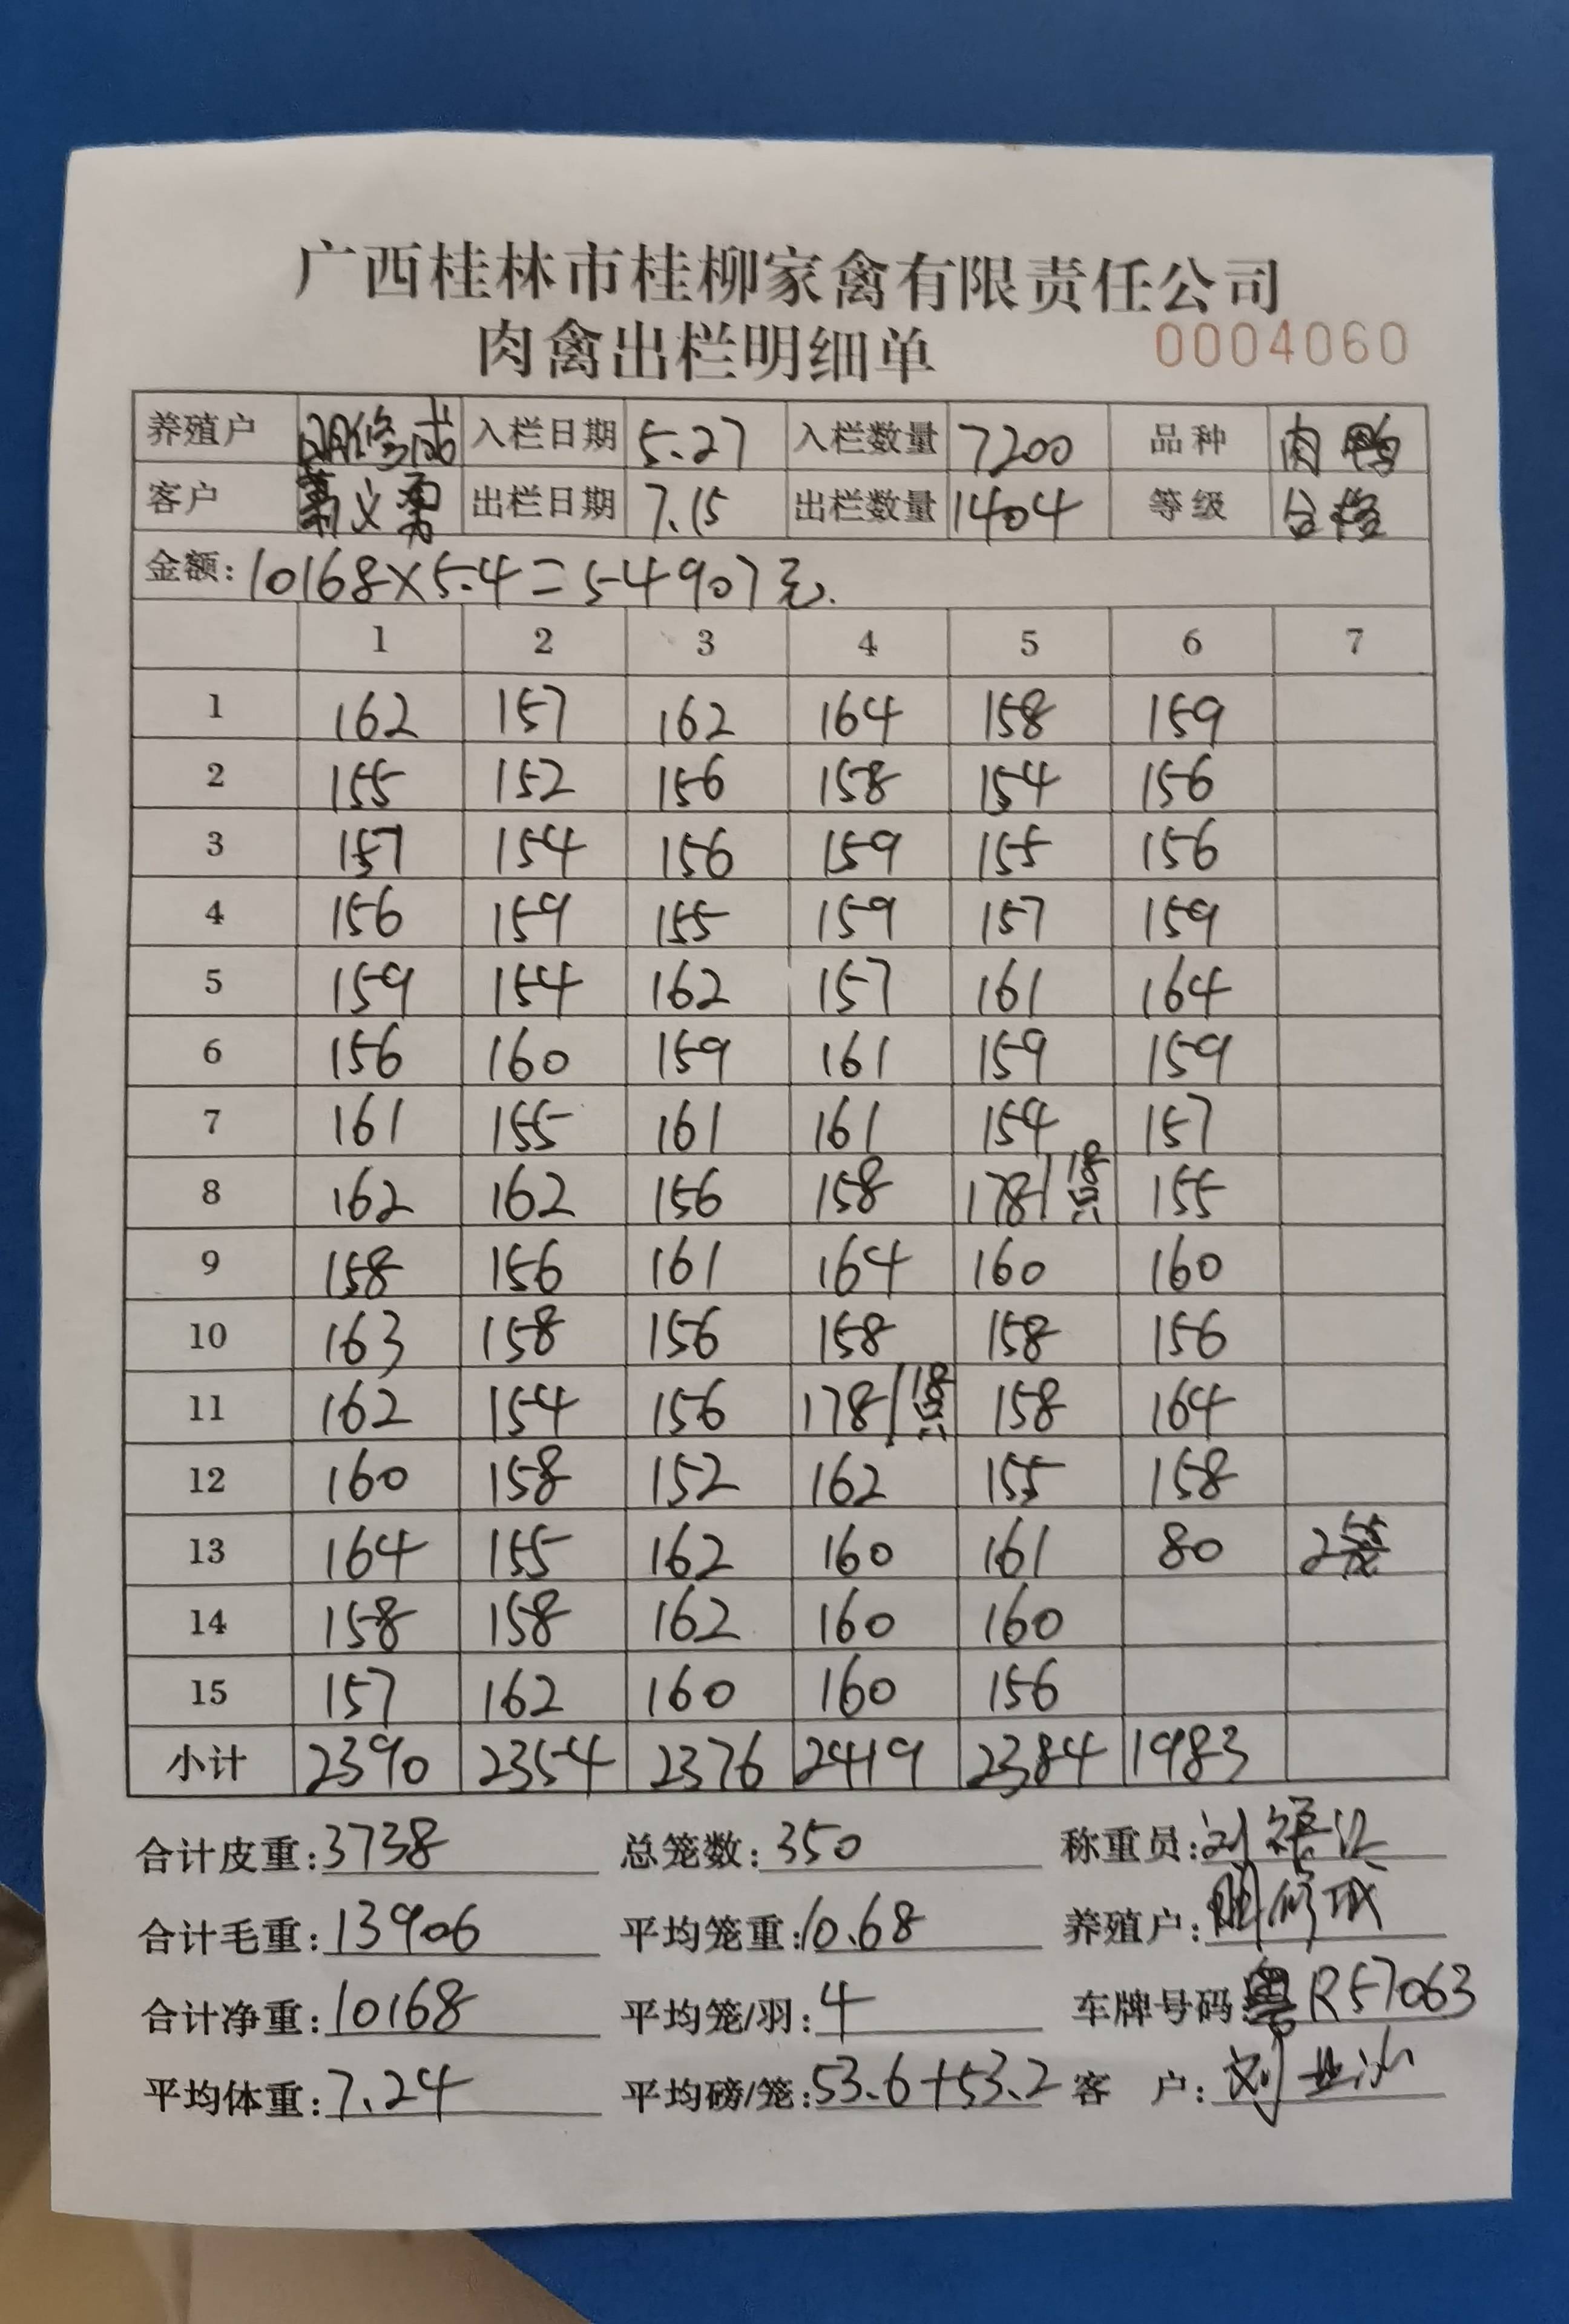 广西桂林市桂柳家禽有限责任公司
肉禽出栏明细单 0004060
养殖户 胡修成 入栏日期 5.27 入栏数量 7200 品种 肉鸭
客户 义勇 出栏日期 7.15 出栏数量 1404 等级 合格
金额: 10168×5.4=54907元.
1 2 3 4 5 6 7
1 162 157 162 164 158 159
2 155 152 156 158 154 156
3 157 154 156 159 155 156
4 156 159 155 159 157 159
5 159 154 162 157 161 164
6 156 160 159 161 159 159
7 161 155 161 161 154 157
8 162 162 156 158 178/18只 155
9 158 156 161 164 160 160
10 163 158 156 158 158 156
11 162 154 156 178/18只 158 164
12 160 158 152 162 155 158
13 164 155 162 160 161 80 2
14 158 158 162 160 160
15 157 162 160 160 156
小计 2390 2354 2376 2419 2384 1983
合计皮重: 3738 总笼数: 350 称重员: 刘
合计毛重: 13906 平均笼重: 10.68 养殖户: 胡修成
合计净重: 10168 平均笼/羽: 4 车牌号码: 粤R57063
平均体重: 7.24 平均磅/笼: 53.6+53.2 客 户: 刘